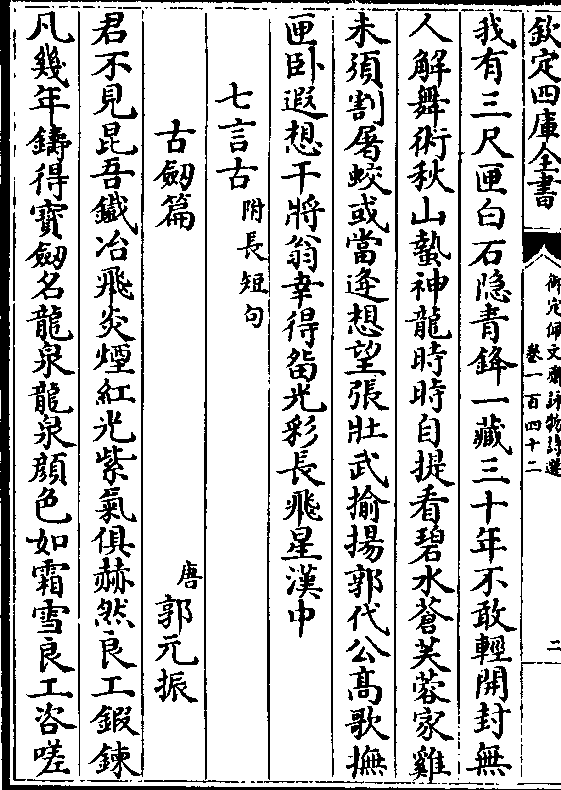 欽定四庫全書
御定佩文齋詠物詩選
卷一百四十二
二
我有三尺匣白石隠青鋒一藏三十年不敢輕開封無
人解舞術秋山蟄神龍時時自提看碧水蒼芙蓉家雞
未須割屠蛟或當逢想望張壯武揄揚郭代公髙歌撫
匣卧遐想干將翁幸得留光彩長飛星漢中
七言古附長短句
古劒篇
唐郭元振
君不見昆吾鐵冶飛炎煙紅光紫氣俱赫然良工鍛鍊
凡幾年鑄得寶劒名龍泉龍泉顔色如霜雪良工咨嗟